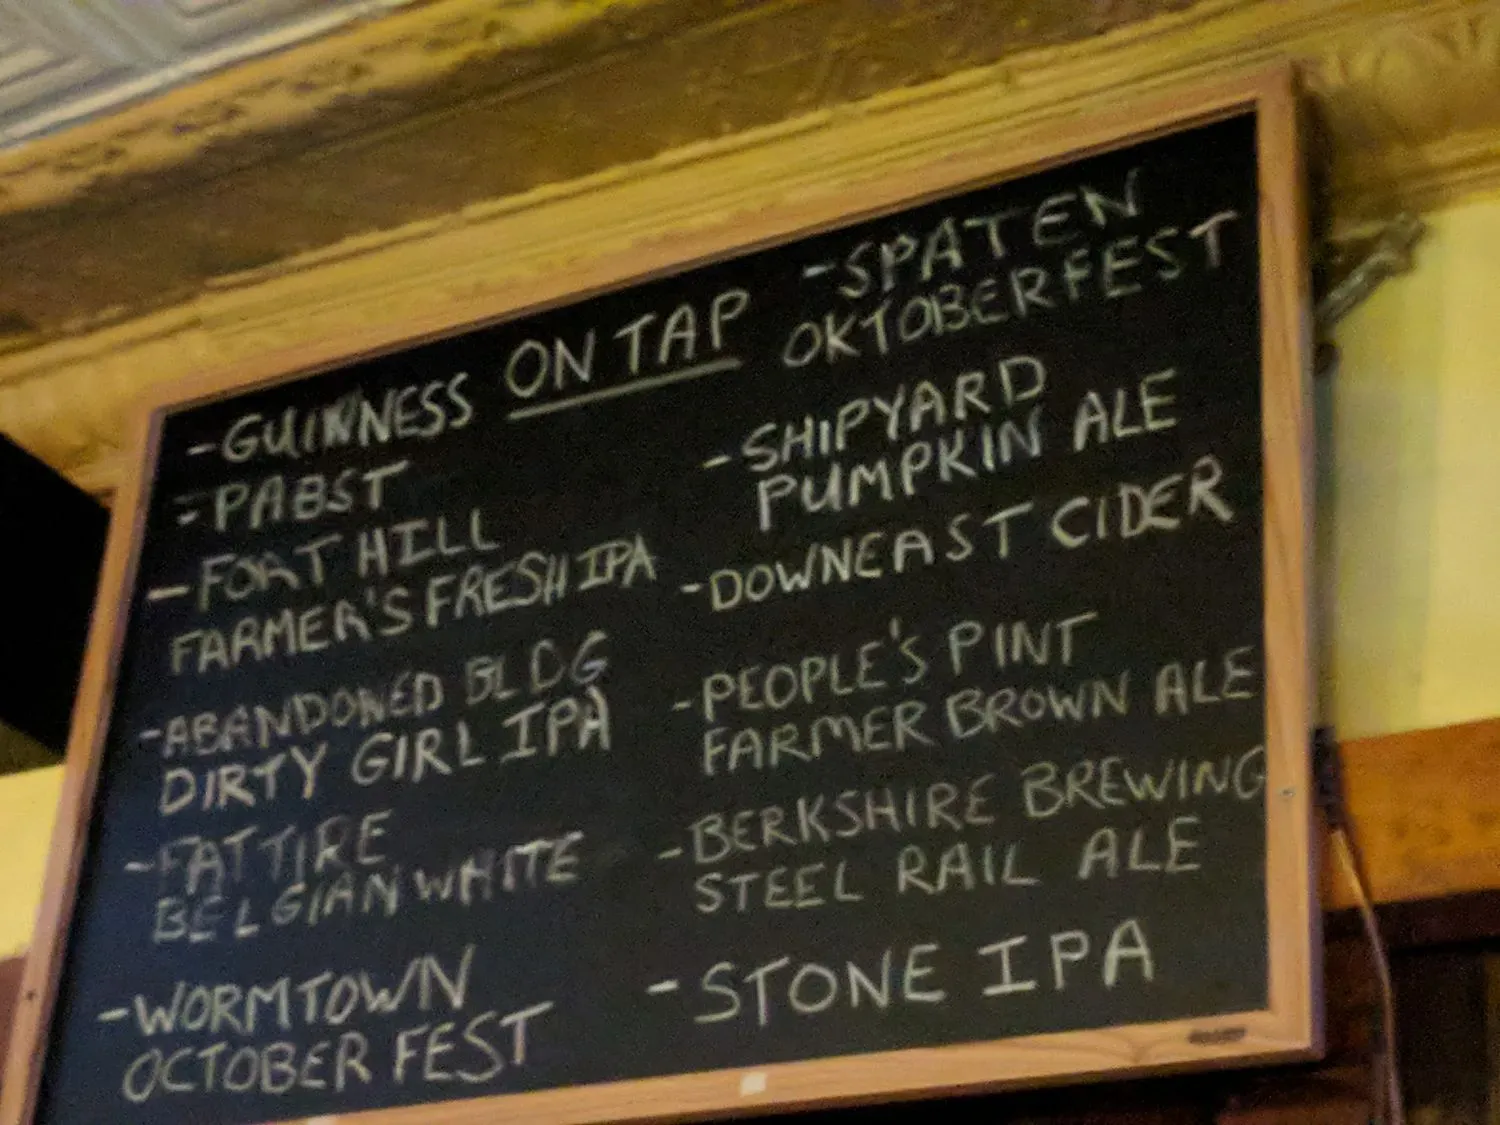 ON TAP
-GUINNESS
-PABST
-FORT HILL
FARMER'S FRESH IPA
-ABANDONED BLDG
DIRTY GIRL IPA
-FAT TIRE
BELGIAN WHITE
-WORMTOWN
OCTOBER FEST
-SPATEN
OKTOBERFEST
-SHIPYARD
PUMPKIN ALE
-DOWNEAST CIDER
-PEOPLE'S PINT
FARMER BROWN ALE
-BERKSHIRE BREWING
STEEL RAIL ALE
-STONE IPA